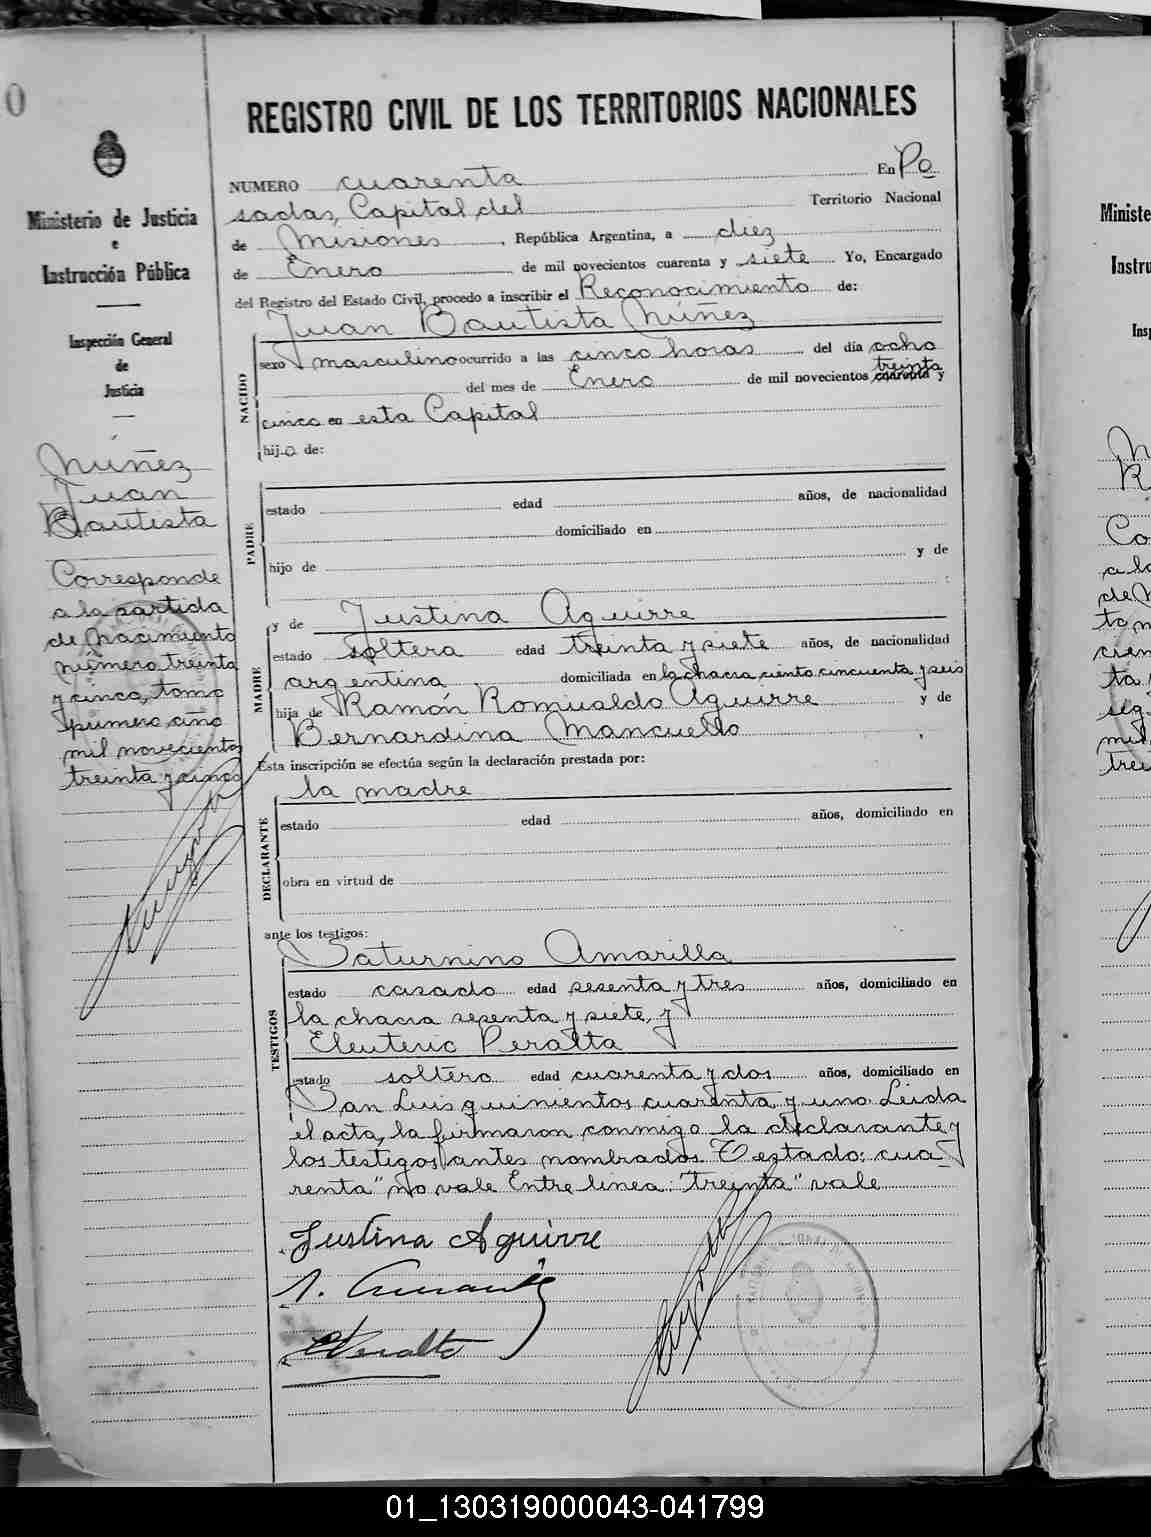 REGISTRO CIVIL DE LOS TERRITORIOS NACIONALES
Ministerio de Justicia
e
Instrucción Pública
Inspección General
de
Justicia
Núñez
Juan
Bautista
Corresponde
a la partida
de nacimiento
número treinta
y cinco, tomo
primero año
mil novecientos
treinta y cinco
NUMERO cuarenta En Po
sadas, Capital del Territorio Nacional
de Misiones, República Argentina, a diez
de Enero de mil novecientos cuarenta y siete Yo, Encargado
del Registro del Estado Civil, procedo a inscribir el Reconocimiento de:
Juan Bautista Núñez
NACIDO
sexo masculino ocurrido a las cinco horas del día ocho
treinta
del mes de Enero de mil novecientos cuarenta y
cinco en esta Capital
hijo de:
PADRE
estado edad años, de nacionalidad
domiciliado en
hijo de y de
MADRE
y de Justina Aguirre
estado soltera edad treinta y siete años, de nacionalidad
argentina domiciliada en la chacra ciento cincuenta y seis
hija de Ramón Romualdo Aguirre y de
Bernardina Mancuello
Esta inscripción se efectúa según la declaración prestada por:
la madre
DECLARANTE
estado edad años, domiciliado en
obra en virtud de
ante los testigos:
Saturnino Amarilla
TESTIGOS
estado casado edad sesenta y tres años, domiciliado en
la chacra sesenta y siete, y
Eleuterio Peralta
estado soltero edad cuarenta y dos años, domiciliado en
San Luis quinientos cuarenta y uno. Leida
el acta, la firmaron conmigo la declarante y
los testigos antes nombrados. Testado: cua-
renta" no vale Entre linea: "treinta" vale
Justina Aguirre
E Peralta
Ministe
Instru
Insp
01_130319000043-041799